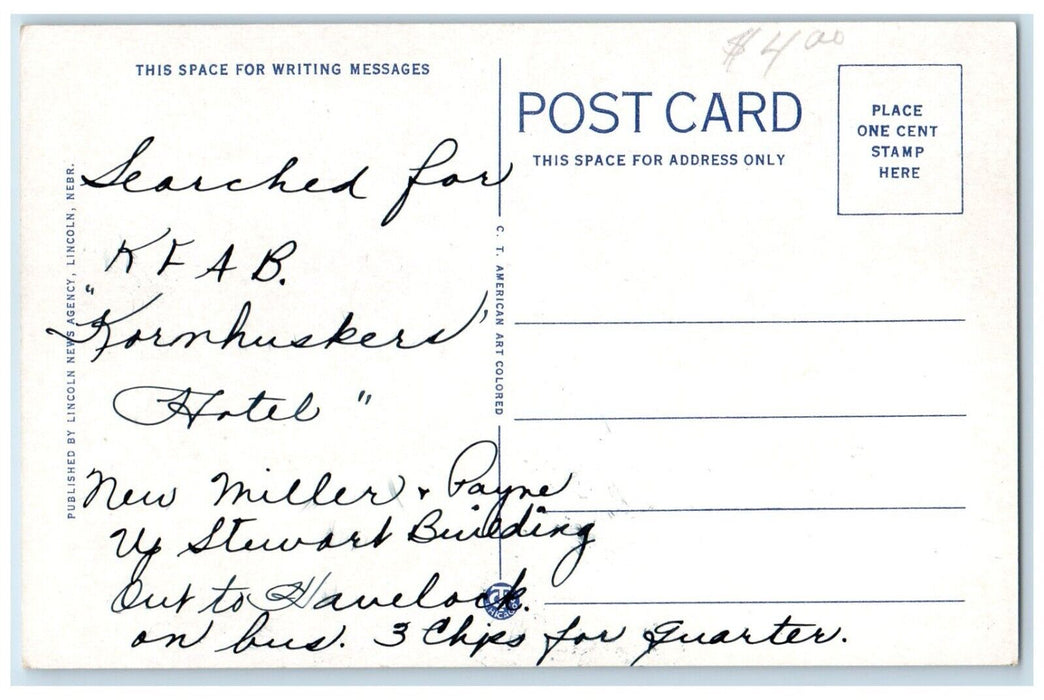 $4.00
THIS SPACE FOR WRITING MESSAGES
Searched for
K F A B.
"Kornhuskers'
Hotel"
New Miller & Payne
Up Stewart Building
Out to Havelock.
on bus. 3 Chips for quarter.
PUBLISHED BY LINCOLN NEWS AGENCY, LINCOLN, NEBR.
C. T. AMERICAN ART COLORED
POST CARD
THIS SPACE FOR ADDRESS ONLY
PLACE
ONE CENT
STAMP
HERE